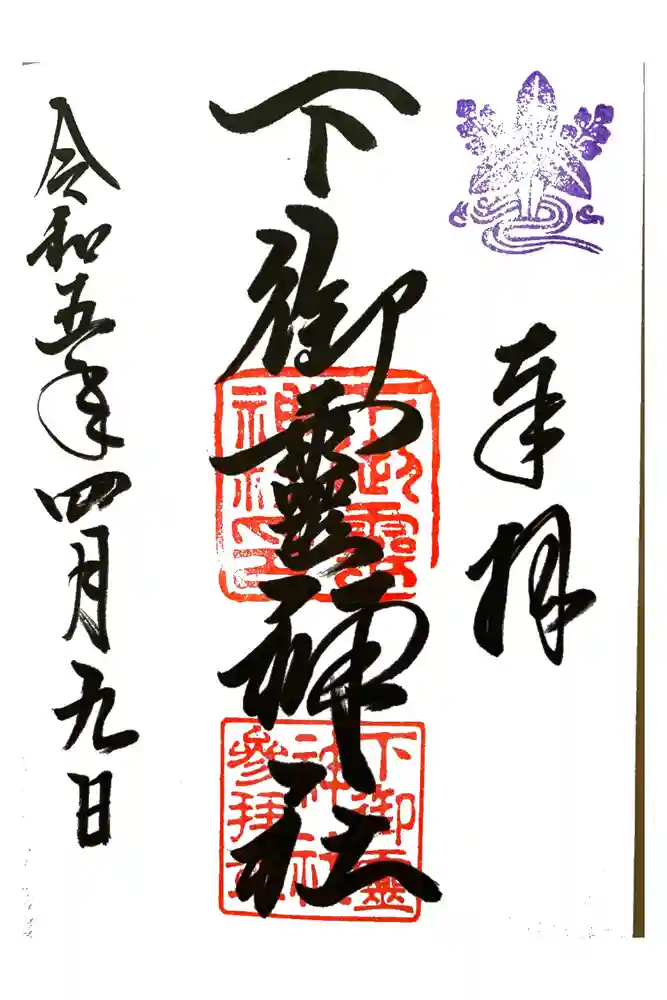 奉拝
下御靈神社
下御靈神社印
下御靈神社参拝章
令和五年四月九日